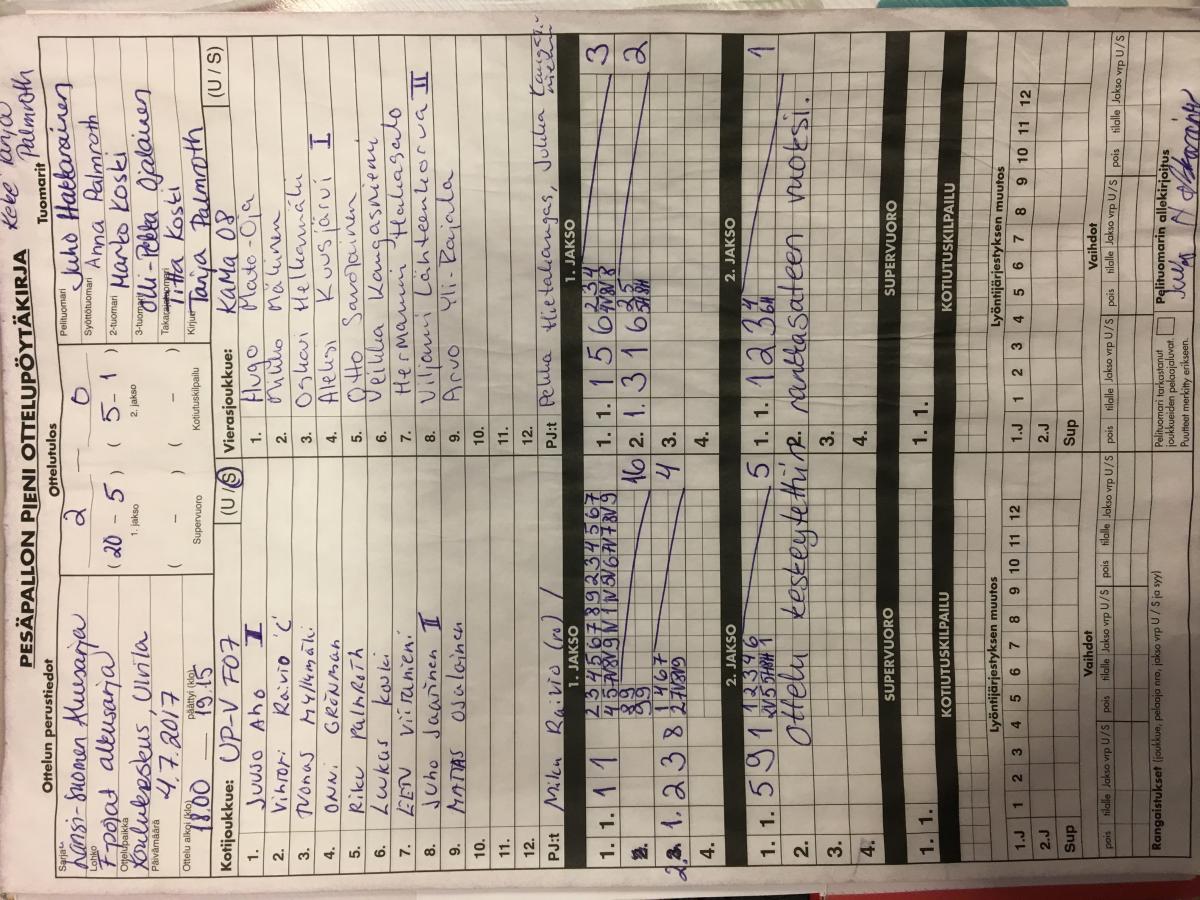 PESÄPALLON PIENI OTTELUPÖYTÄKIRJA
Keke Tanja
Palmroth
Ottelun perustiedot
Ottelutulos
Tuomarit
Sarja
Länsi-Suomen Aluesarja
Lohko
F-pojat alkusarja
Ottelupaikka
Koulukeskus, Ulvila
Päivämäärä
4.7.2017
Ottelu alkoi (klo)
1800
päättyi (klo)
19.15
2 — 0
( 20 – 5 ) ( 5 – 1 )
1. jakso 2. jakso
( – ) ( – )
Supervuoro Kotiutuskilpailu
Pelituomari Juho Hakkarainen
Syöttötuomari Anna Palmroth
2-tuomari Marko Koski
3-tuomari Olli-Pekka Ojalainen
Takarajatuomari Iitta Koski
Kirjuri Tanja Palmroth
Kotijoukkue: UP-V F07 (U / S)
1. Juuso Aho II
2. Vihtori Raivio C
3. Joonas Myllymäki
4. Onni Grönman
5. Riku Palmroth
6. Luukas Kouki
7. Eetu Viitaniemi
8. Juho Jaavinen II
9. Matias Osalainen
10.
11.
12.
PJ:t Mika Raivio (ro) /
Vierasjoukkue: KaMa 08 (U / S)
1. Hugo Mato-Oja
2. Niilo Mäkinen
3. Oskari Helkamäki
4. Aleksi Kuusjärvi I
5. Otto Savolainen
6. Veikka Kangasniemi
7. Hermanni Hauhasalo
8. Viljami Lähteenkorva II
9. Arvo Yli-Rajala
10.
11.
12.
PJ:t Pekka Hietakangas, Jukka Kangasniemi
1. JAKSO
1. 1. 1 1
2 3 4 5 6 7 8 9 2 3 4 5 6 7
16
2. 1. 2 3 8
1 4 6 7
4
3.
4.
1. JAKSO
1. 1. 1 5 6 2 3 4 3
2. 1. 3 1 6 2 5 2
3.
4.
2. JAKSO
1. 1. 5 9 1 1 2 3 4 6 5
2. Ottelu keskeytettiin rankkasateen vuoksi.
3.
4.
2. JAKSO
1. 1. 1 2 3 4 1
2.
3.
4.
SUPERVUORO
1. 1.
SUPERVUORO
1. 1.
KOTIUTUSKILPAILU
KOTIUTUSKILPAILU
Lyöntijärjestyksen muutos
1.J 1 2 3 4 5 6 7 8 9 10 11 12
2.J
Sup
Lyöntijärjestyksen muutos
1.J 1 2 3 4 5 6 7 8 9 10 11 12
2.J
Sup
Vaihdot
pois tilalle Jakso vrp U/S pois tilalle Jakso vrp U/S pois tilalle Jakso vrp U/S
Vaihdot
pois tilalle Jakso vrp U/S pois tilalle Jakso vrp U/S pois tilalle Jakso vrp U/S
Rangaistukset (joukkue, pelaaja nro, jakso vrp U / S ja syy)
Pelituomari tarkastanut
joukkueiden pelaajaluvat.
Puutteet merkitty erikseen.
Pelituomarin allekirjoitus